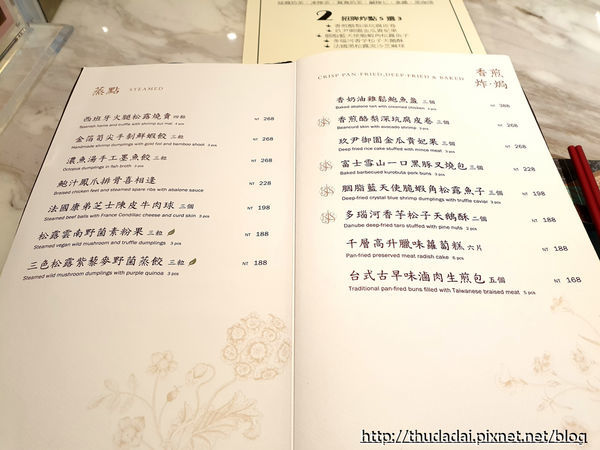 2 招牌炸點 5 選 3
蒸點 STEAMED
西班牙火腿松露燒賣 四顆 NT 268
Spanish hams and truffle with shrimp sui mai 4 pcs
金箔筍尖手剁鮮蝦餃 三粒 NT 268
Handmade shrimp dumplings with gold foil and bamboo shoot 3 pcs
濃魚湯手工墨魚餃 三粒 NT 268
Octopus dumplings in fish broth 3 pcs
鮑汁鳳爪排骨喜相逢 NT 228
Braised chicken feet and steamed spare ribs with abalone sauce
法國康弟芝士陳皮牛肉球 三個 NT 198
Steamed beef balls with France Condillac cheese and curd skin 3 pcs
松露雲南野菌素粉果 三粒 NT 188
Steamed vegan wild mushroom and truffle dumplings 3 pcs
三色松露紫藜麥野菌蒸餃 三粒 NT 188
Steamed wild mushroom dumplings with purple quinoa 3 pcs
CRISP PAN-FRIED,DEEP-FRIED & BAKED
香煎
炸·焗
香奶油雞鬆鮑魚盞 三個 NT 388
Baked abalone tart with creamed chicken 3 pcs
香煎酪梨深坑腐皮卷 三個 NT 268
Beancurd skin with avocado shrimp 3 pcs
玖尹御園金瓜貴妃果 三個 NT 268
Deep fried rice cake stuffed with mince meat 3 pcs
富士雪山一口黑豚叉燒包 三個 NT 228
Baked barbecued kurobuta pork buns 3 pcs
胭脂藍天使脆蝦角松露魚子 三個 NT 198
Deep-fried crystal blue shrimp dumplings with truffle caviar 3 pcs
多瑙河香芋松子天鵝酥 二個 NT 188
Danube deep-fried taro stuffed with pine nuts 2 pcs
千層高升臘味蘿蔔糕 六片 NT 188
Pan-fried preserved meat radish cake 6 pcs
台式古早味滷肉生煎包 五個 NT 168
Traditional pan-fired buns filled with Taiwanese braised meat 5 pcs
http://thudadai.pixnet.net/blog